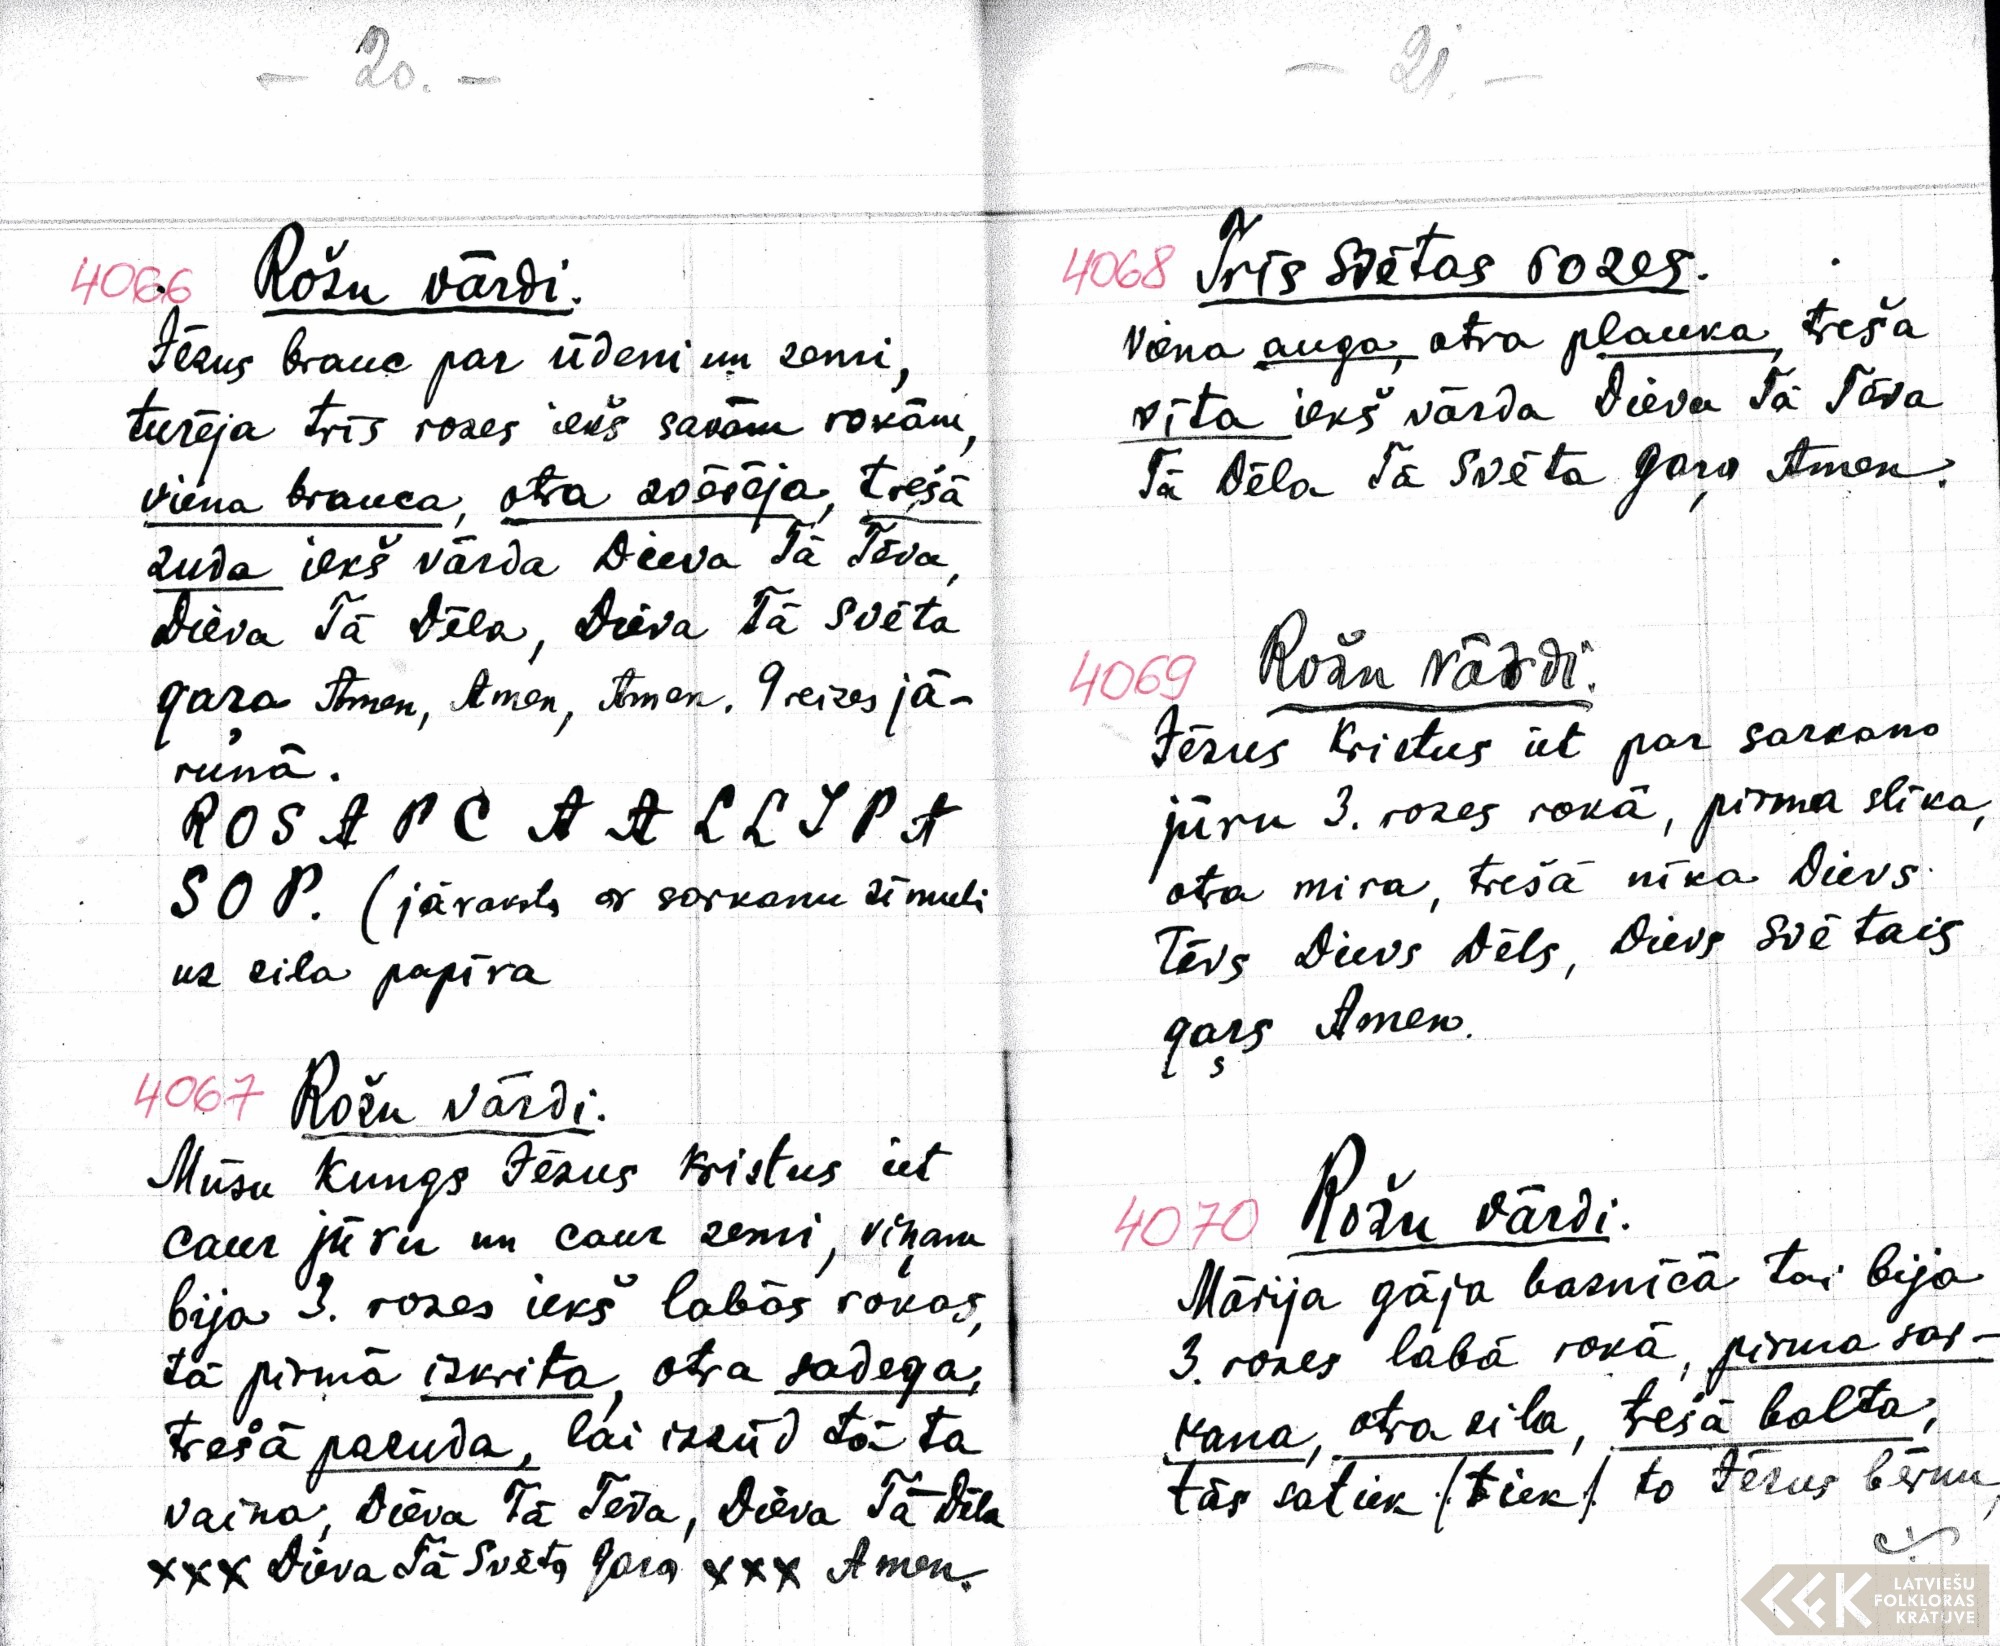 - 20. -
4066 Rožu vārdi.
Jēzus brauc par ūdeni un zemi,
turēja trīs rozes iekš savām rokām,
viena brauca, otra zvērēja, trešā
zuda iekš vārda Dieva Tā Tēva,
Dieva Tā Dēla, Dieva Tā Svēta
gaŗa Amen, Amen, Amen. 9 reizes jā-
runā.
R O S A P C A A L L I P A
S O P. (jāraksta ar sarkanu zīmuli
uz zila papīra
4067 Rožu vārdi.
Mūsu Kungs Jēzus Kristus iet
caur jūru un caur zemi, viņam
bija 3. rozes iekš labās rokas,
tā pirmā izkrita, otra sadega,
trešā pazuda, lai izzūd tā ta
vaina, Dieva Tā Tēva, Dieva Tā Dēla
xxx Dieva Tā Svēta Gara xxx Amen.
- 21. -
4068 Trīs Svētas rozes.
Viena auga, otra plauka, treša
vīta iekš vārda Dieva Tā Tēva
Tā Dēla Tā Svēta Gaŗa Amen.
4069 Rožu vārdi.
Jēzus Kristus iet par sarkano
jūru 3. rozes rokā, pirma slīka,
otra mira, trešā nīka Dievs
Tēvs Dievs Dēls, Dievs Svētais
gaŗs Amen.
4070 Rožu vārdi.
Mārija gāja baznīcā tai bija
3. rozes labā rokā, pirma sar-
kana, otra zila, trešā balta,
tās satiek /:tiek/. to Jēzus bērnu,
LATVIEŠU
FOLKLORAS
KRĀTUVE